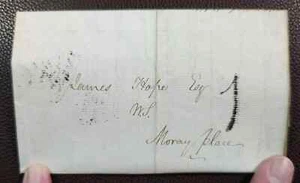 James Hope Esq
W.S.
Moray Place